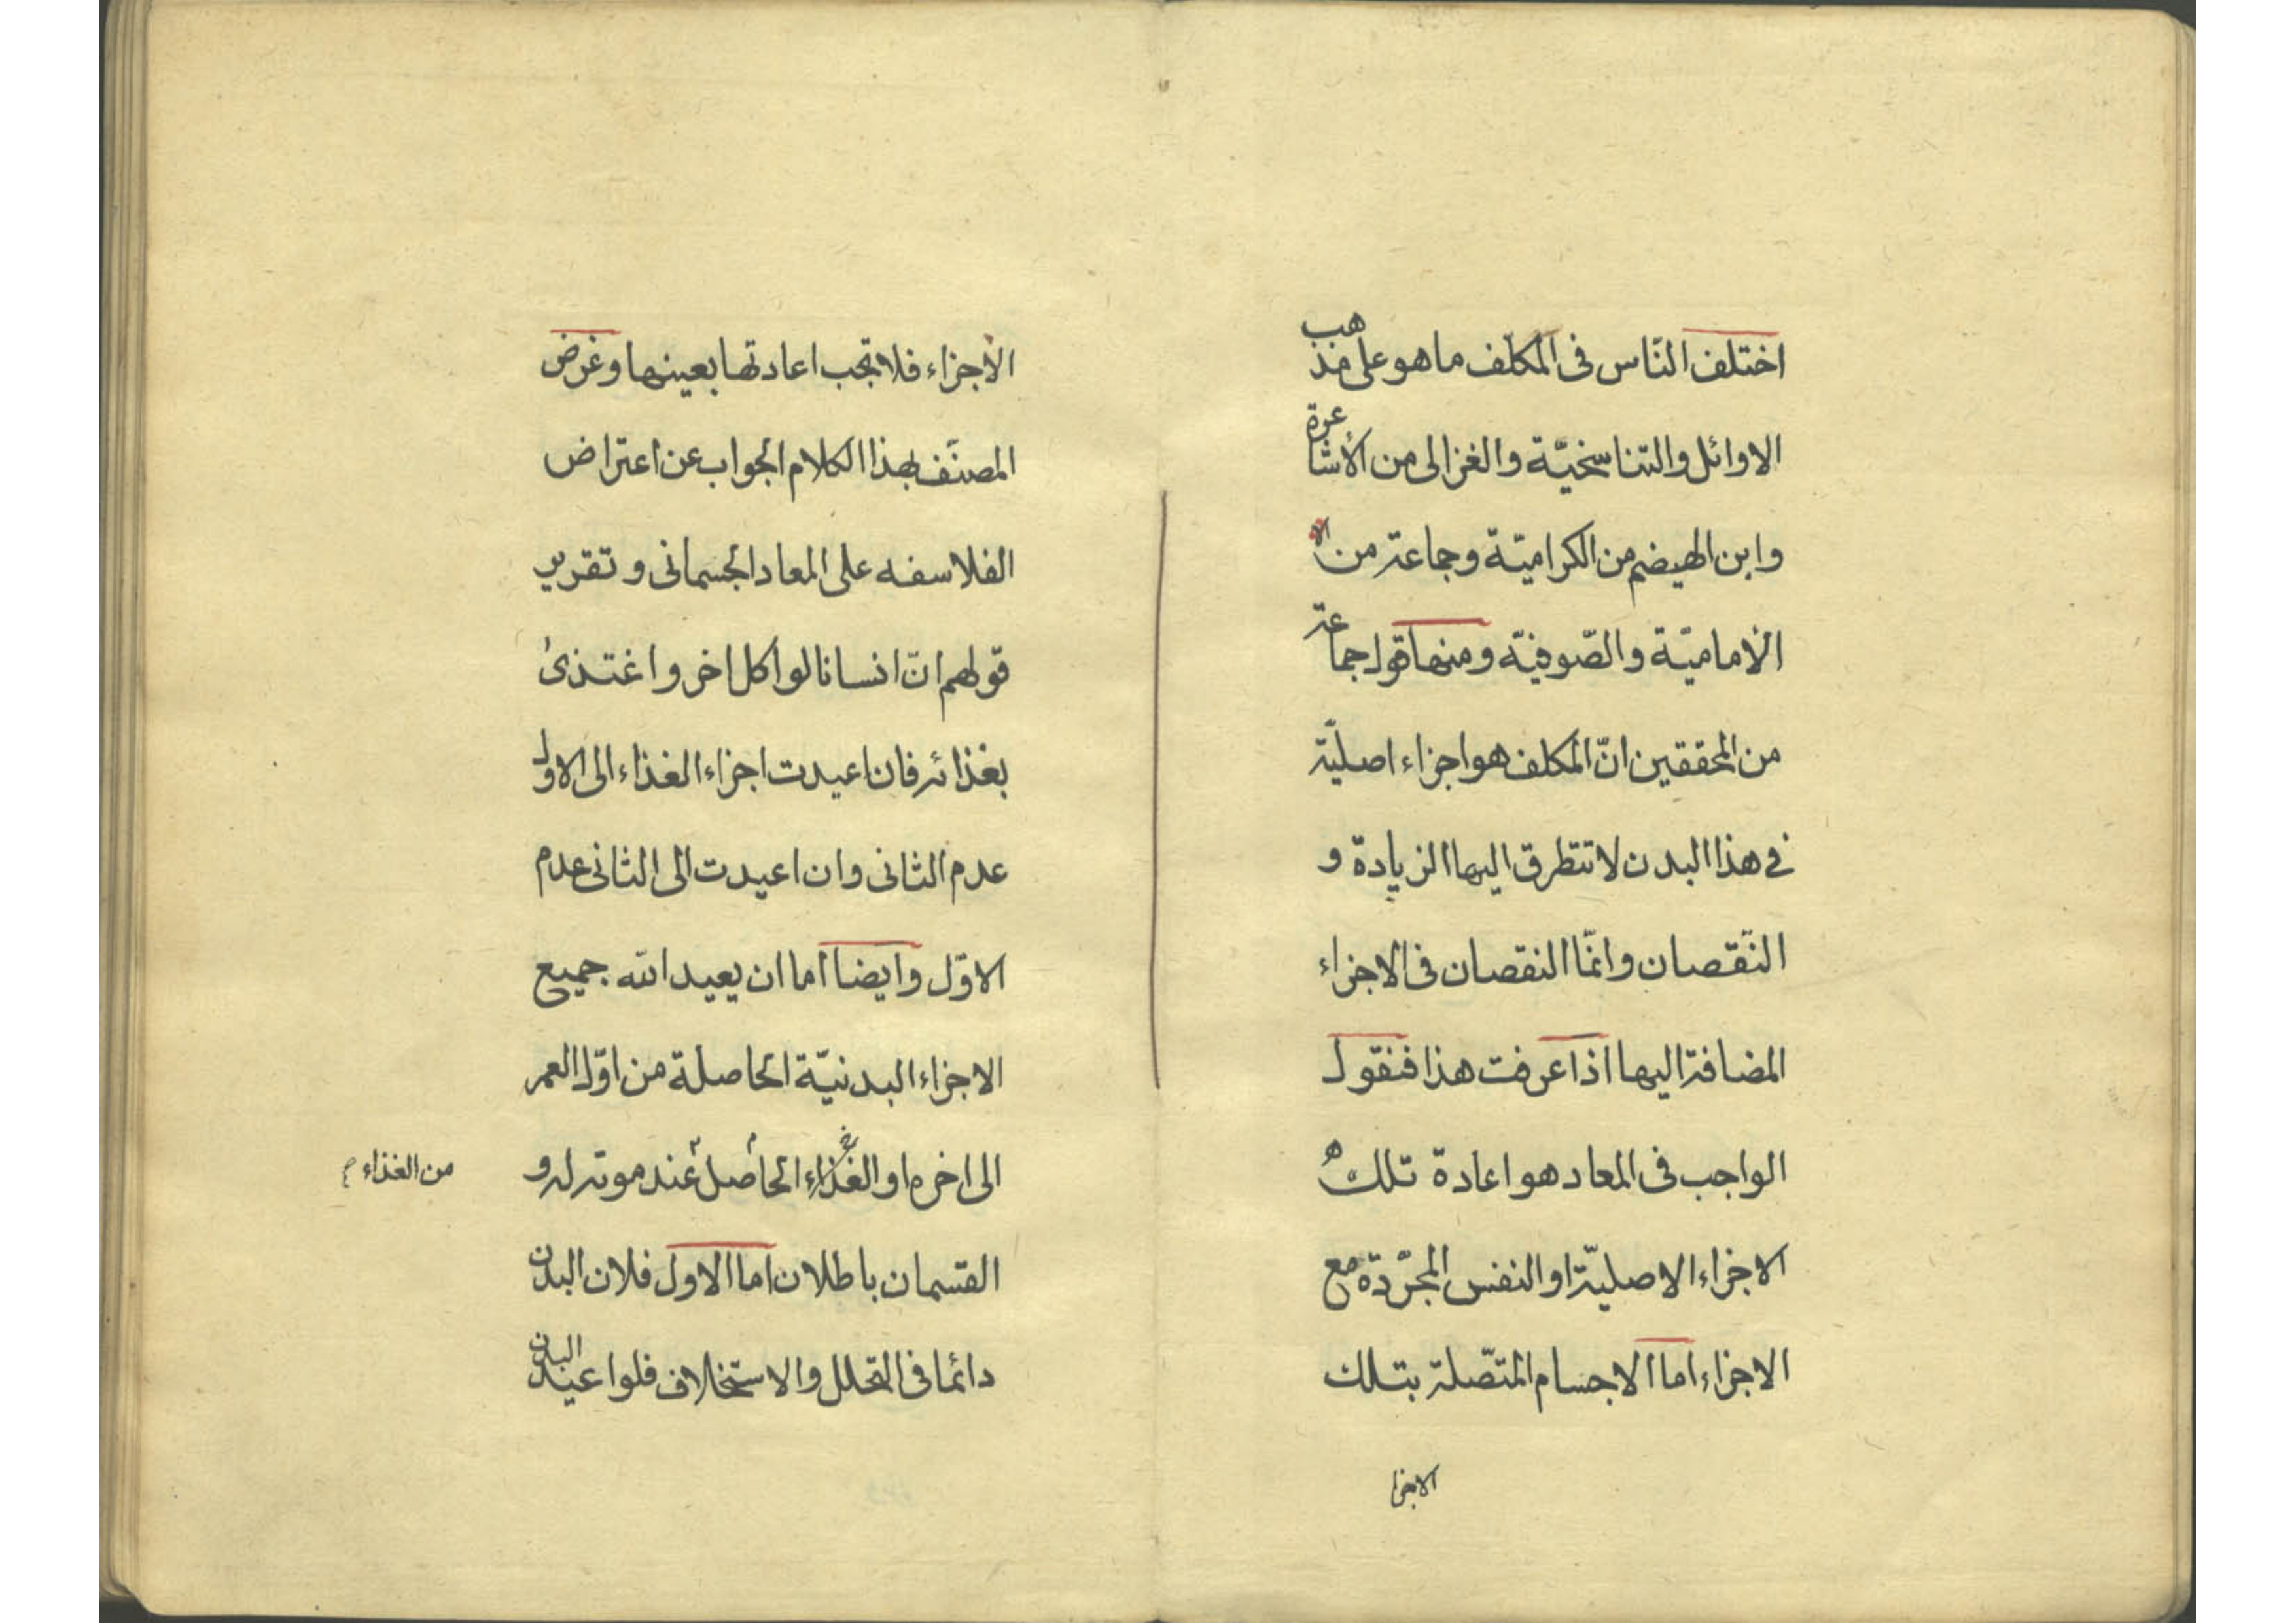 اختلف النّاس فى المكلّف ما هو على مذهب
الاوائل والتناسخيّة والغزالى من الأشاعرة
وابن الهيضم من الكراميّة وجماعة من الا
الأماميّة والصّوفيّة ومنها قول جماعة
من المحققين انّ المكلف هو اجزاء اصليّة
فى هذا البدن لا تتطرق اليها الزيادة و
النّقصان وانّما النقصان فى الاجزاء
المضافة اليها اذا عرفت هذا فنقول
الواجب فى المعاد هو اعادة تلك
الاجزاء الاصليّة او النفس المجرّدة مع
الاجزاء اما الاجسام المتّصلة بتلك
الاجزا
الأجزاء فلا تجب اعادتها بعينها وغرض
المصنّف بهذا الكلام الجواب عن اعتراض
الفلاسفه على المعاد الجسمانى وتقرير
قولهم انّ انسانا لو اكل اخر واغتذى
بغذائه فان اعيدت اجزاء الغذاء الى الاول
عدم الثانى وان اعيدت الى الثانى عدم
الاوّل وايضا اما ان يعيد الله جميع
الاجزاء البدنيّة الحاصلة من اوّل العمر
الى اخره او الغذاء الحاصل عند موته له و
من الغذاء
القسمان باطلان اما الاول فلان البدن
دائما فى التحلل والاستخلاف فلو اعيد البدن